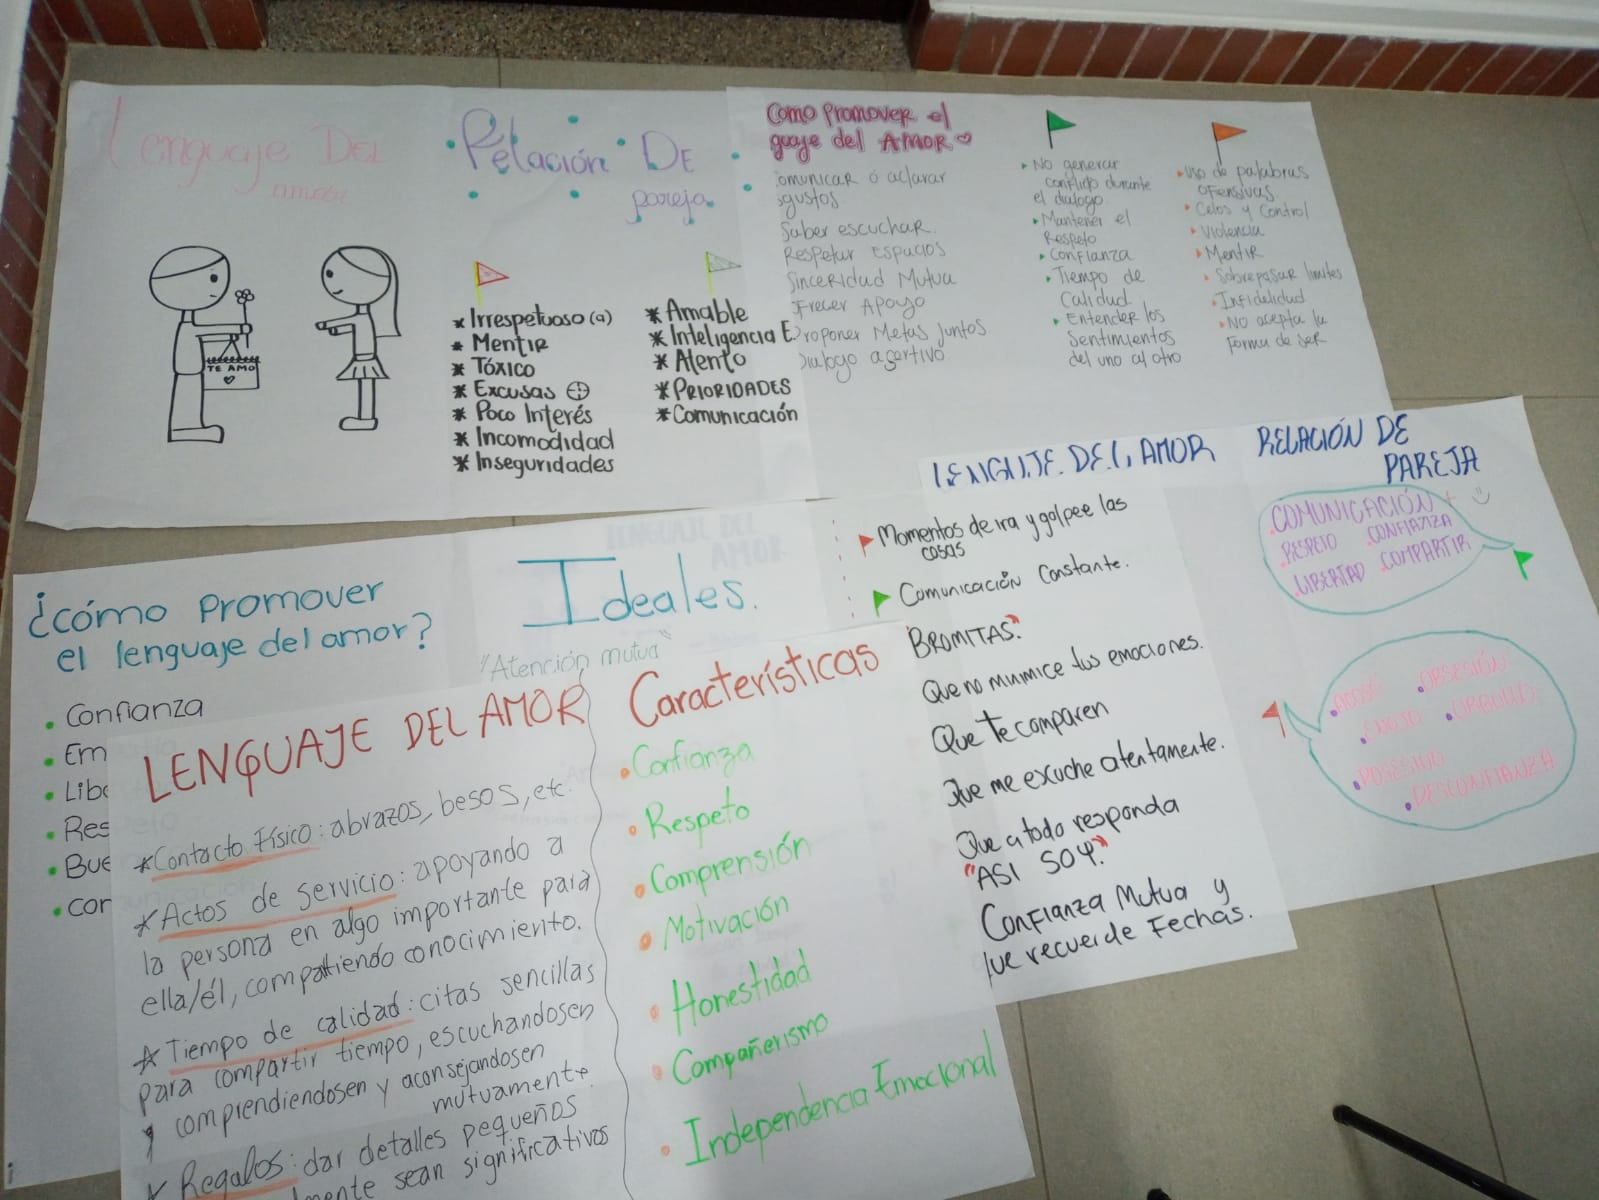 Lenguaje DEL
amor
TE AMO
Relación DE
pareja
* Irrespetuoso (a)
* Mentir
* Tóxico
* Excusas
* Poco Interés
* Incomodidad
* Inseguridades
* Amable
* Inteligencia E.
* Atento
* PRIORIDADES
* Comunicación
Como promover el
guaje del AMOR
omunicar o aclarar
gustos
Saber escuchar.
Respetar Espacios
Sinceridad Mutua
frecer Apoyo
roponer Metas juntos
Dialogo asertivo
No generar
conflicto durante
el dialogo
Mantener el
Respeto
Confianza
Tiempo de
Calidad
Entender los
Sentimientos
del uno al otro
Uso de palabras
ofensivas.
Celos y Control
Violencia
Mentir
Sobrepasar limites
Infidelidad
NO acepta la
forma de ser
¿cómo promover
el lenguaje del amor?
Confianza
Em
Libe
Res
Bue
cor
Ideales.
"Atención mutua"
LENGUAJE DEL AMOR
*Contacto Físico: abrazos, besos, etc.
*Actos de servicio: apoyando a
la persona en algo importante para
ella/él, compartiendo conocimiento.
*Tiempo de calidad: citas sencillas
para compartir tiempo, escuchandosen
comprendiendosen y aconsejandosen
mutuamente.
Regalos: dar detalles pequeños
mente sean significativos
Características
Confianza
Respeto
Comprensión
Motivación
Honestidad
Compañerismo
Independencia Emocional
LENGUAJE DEL AMOR
Momentos de ira y golpee las
cosas
Comunicación Constante.
"BROMITAS."
Que no minimice tus emociones.
Que te comparen
Que me escuche atentamente.
Que a todo responda
"ASI SOY."
Confianza Mutua y
que recuerde Fechas.
RELACIÓN DE
PAREJA
COMUNICACIÓN
RESPETO CONFIANZA
LIBERTAD COMPARTIR
OBSESIÓN
POSESIVO
DESCONFIANZA